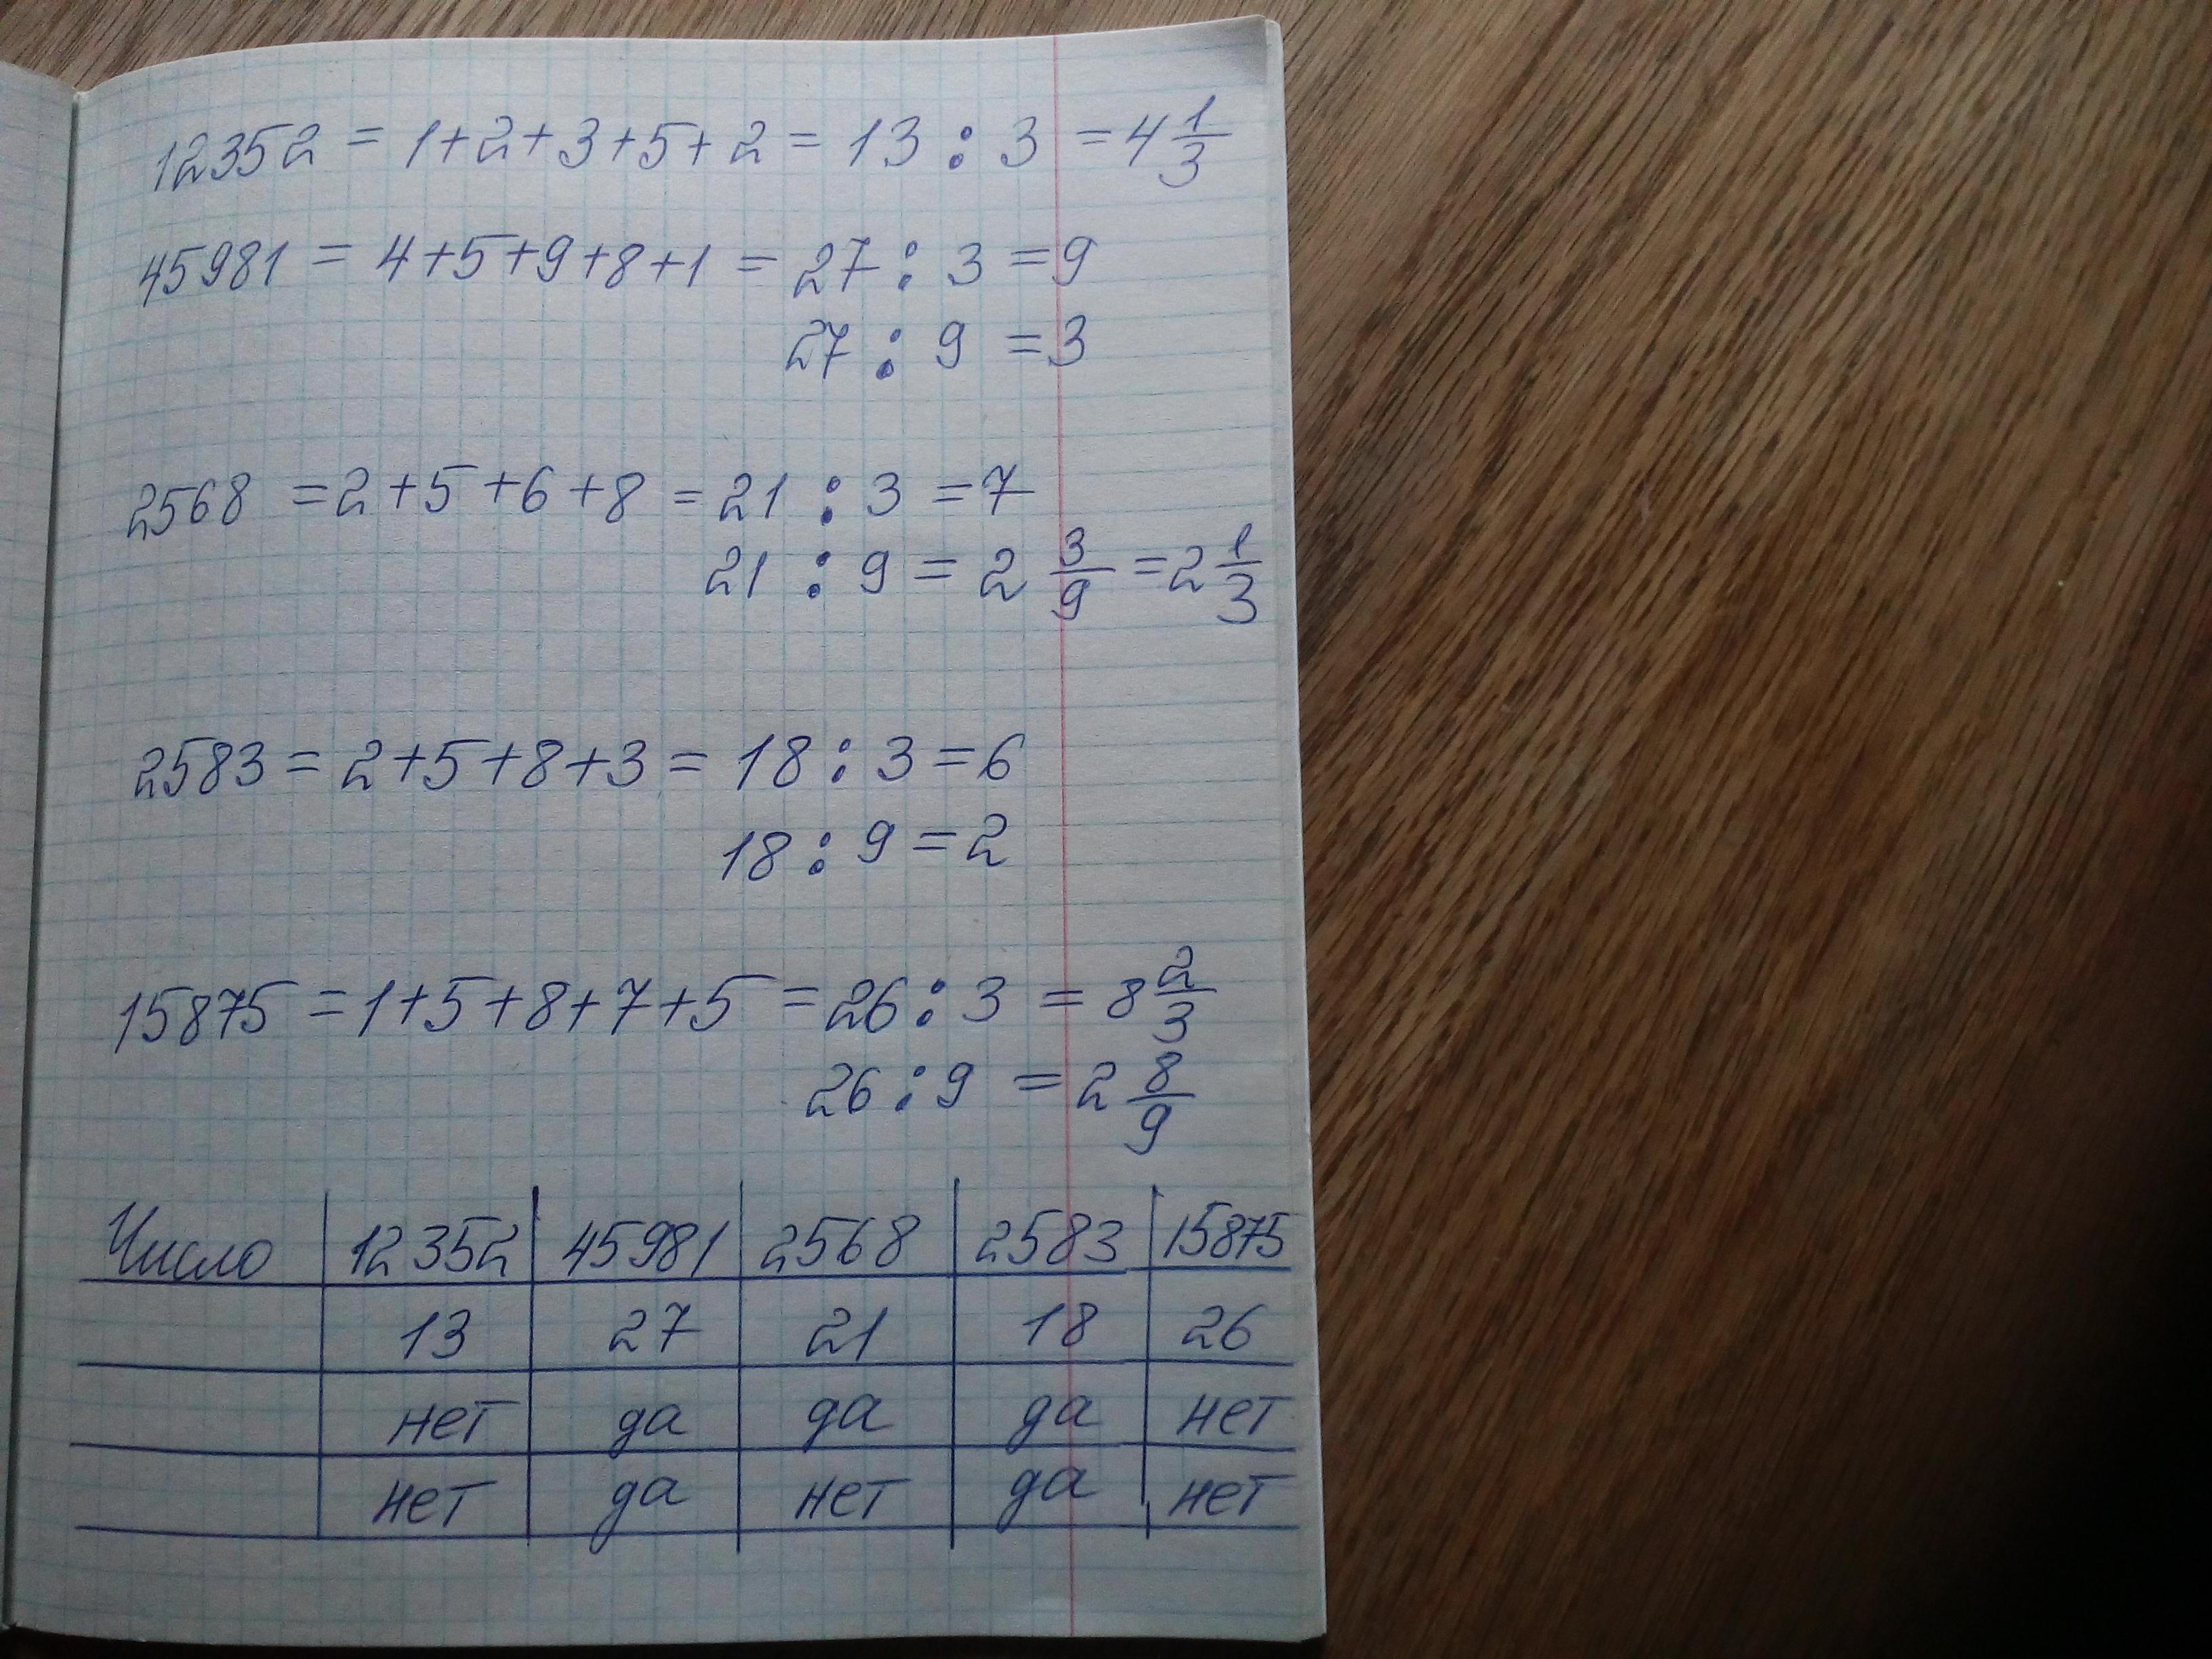 12352 = 1+2+3+5+2 = 13 : 3 = 4 1/3
45981 = 4+5+9+8+1 = 27 : 3 = 9
27 : 9 = 3
2568 = 2+5+6+8 = 21 : 3 = 7
21 : 9 = 2 3/9 = 2 1/3
2583 = 2+5+8+3 = 18 : 3 = 6
18 : 9 = 2
15875 = 1+5+8+7+5 = 26 : 3 = 8 2/3
26 : 9 = 2 8/9
Число 12352 45981 2568 2583 15875
13 27 21 18 26
нет да да да нет
нет да нет да нет